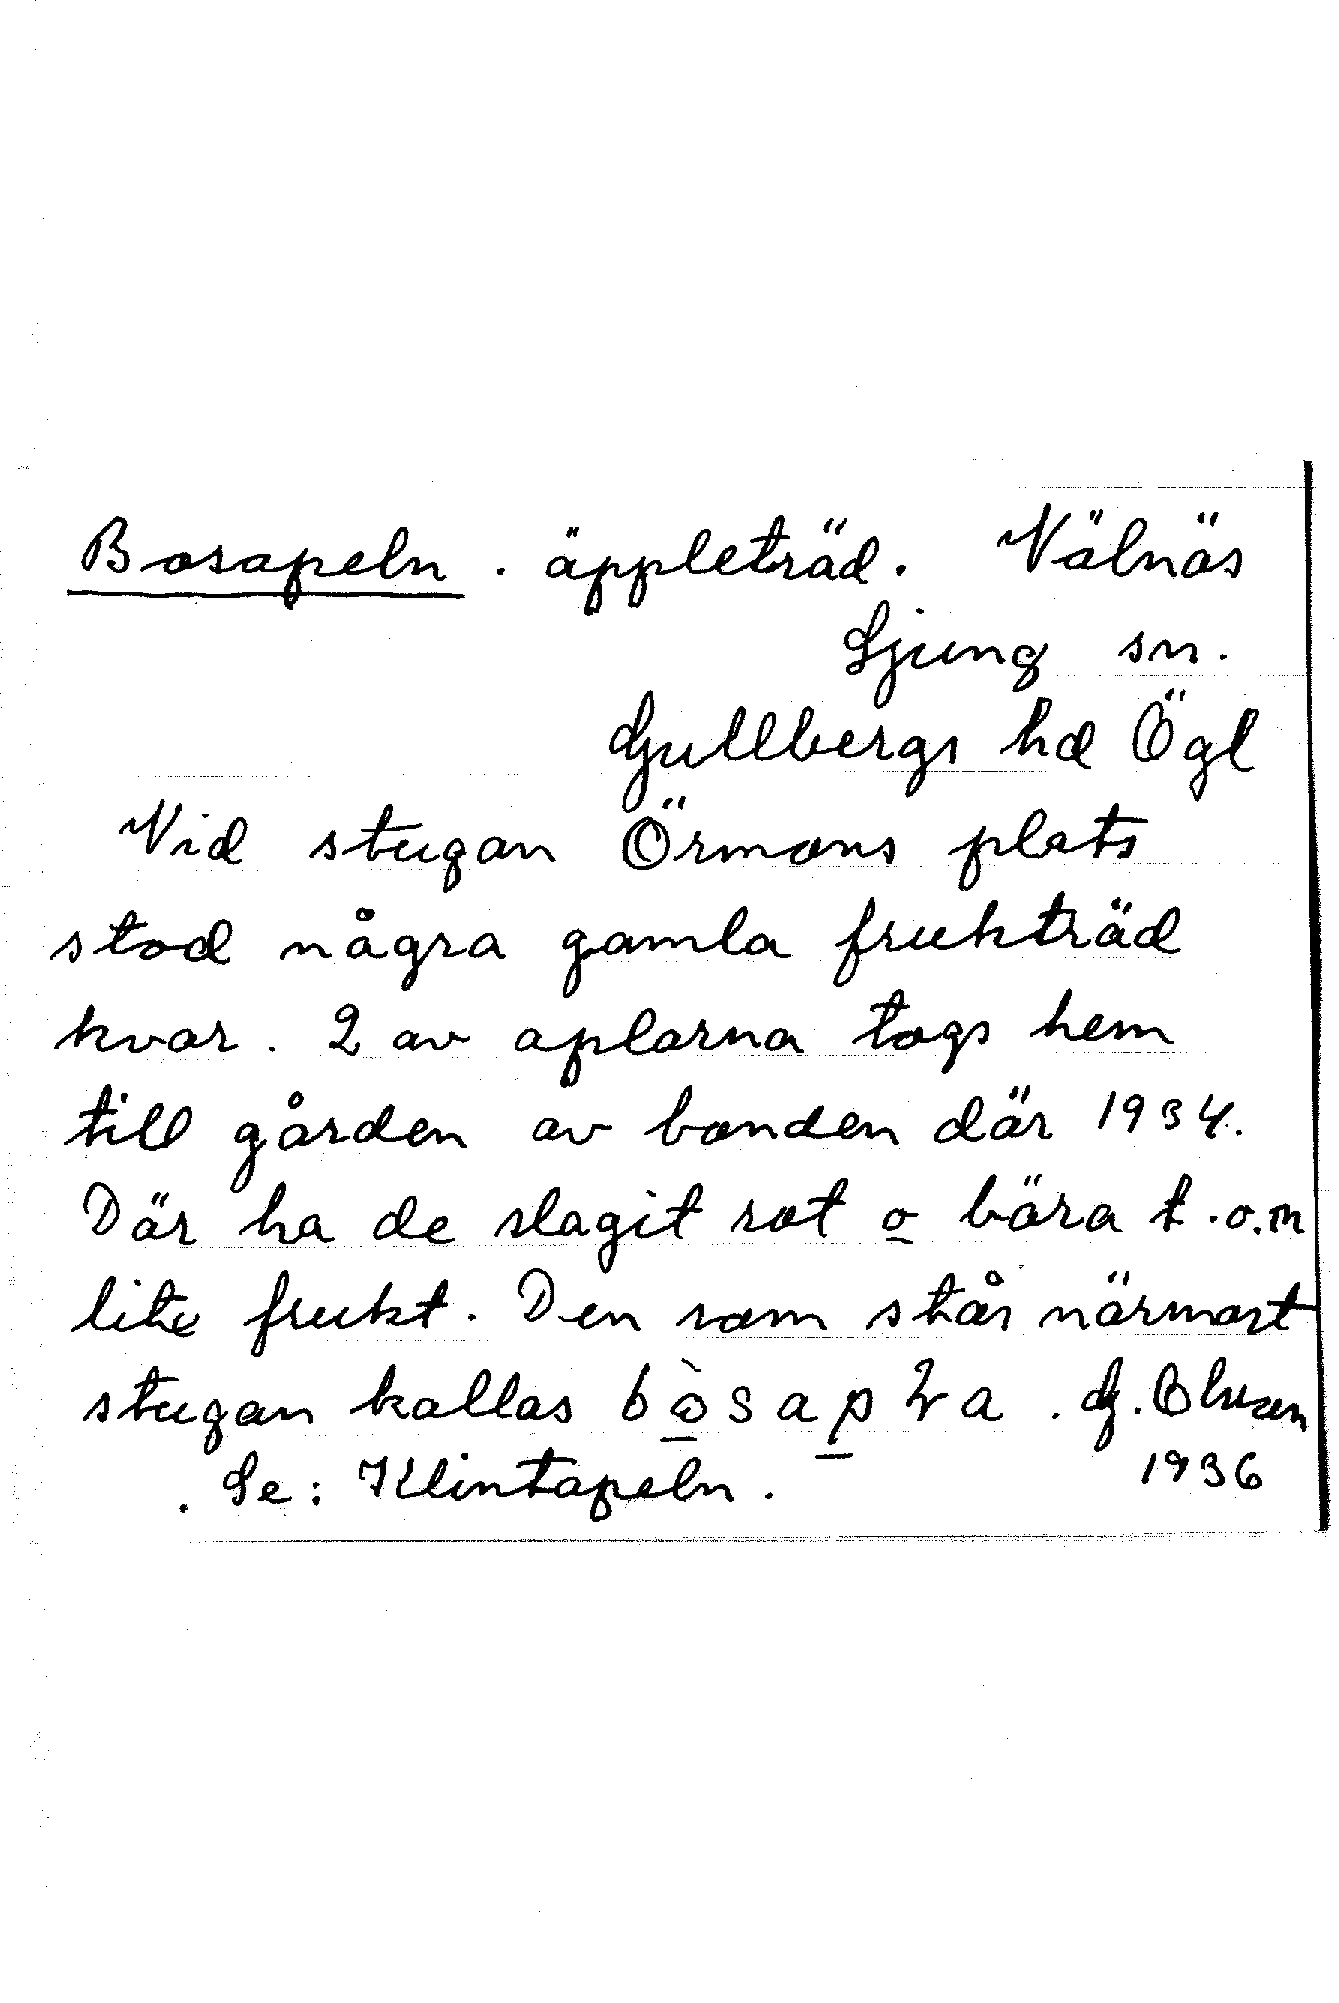 Bosapeln. äppleträd. Välnäs
Ljung sn.
Gullbergs hd Ögl
Vid stugan Örmons plats
stod några gamla fruktträd
kvar. 2 av aplarna togs hem
till gården av bonden där 1934.
Där ha de slagit rot o bära t.o.m
lite frukt. Den som står närmast
stugan kallas
1936
. Se: Klintapeln.